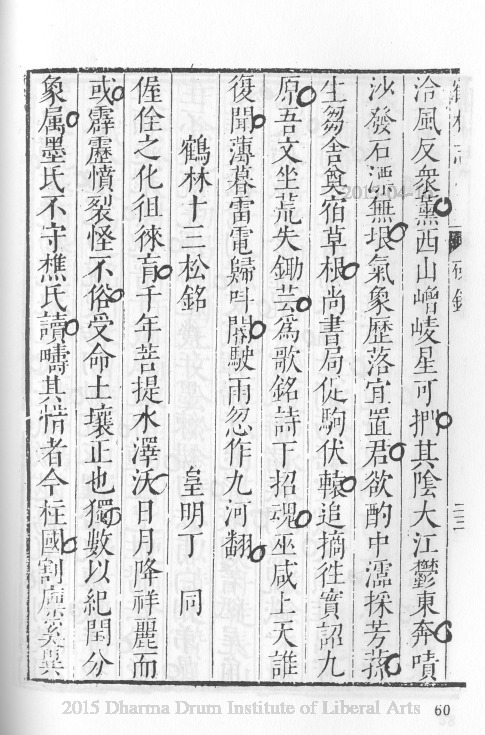 泠風反衆薰西山嶒崚星可捫其陰大江鬱東奔噴
沙發石漂無垠氣象歷落宜置君欲酌中濡採芳蓀
生芻舍奠宿草根尚書局促駒伏轅追摘徃實詔九
原吾文坐荒失鋤芸爲歌銘詩下招魂巫咸上天誰
復聞薄暮雷電歸叫閽駛雨忽作九河翻
鶴林十三松銘 皇明丁 同
偓佺之化徂徠育千年菩提水澤沃日月降祥麗而
或霹靂憤裂怪不俗受命土壤正也獨數以紀閏分
象属墨氏不守樵氏讀疇其情者今柱國割
2015 Dharma Drum Institute of Liberal Arts
60